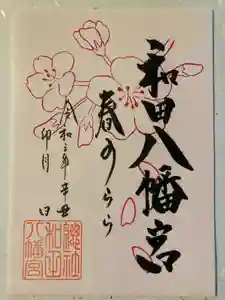 和田八幡宮
春のうらら
令和三年辛丑
卯月 日
神社
和田
八幡宮